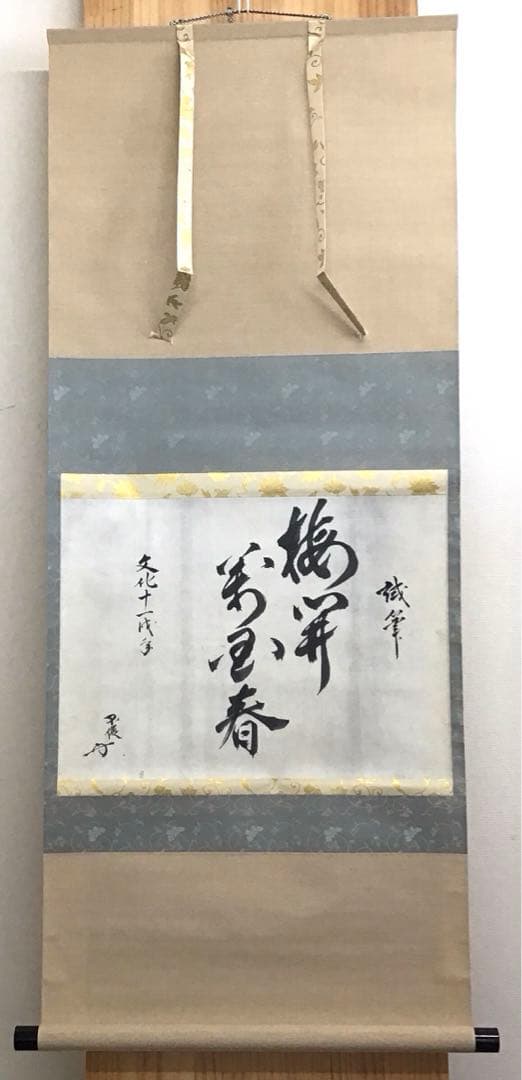 試筆
梅開
萬国春
文化十一戌年